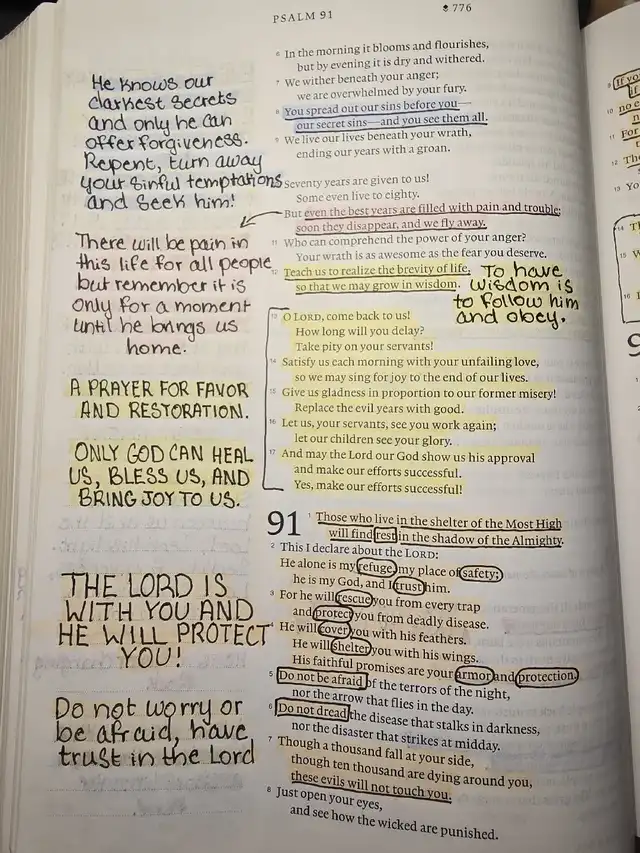 PSALM 91
776
He knows our
darkest secrets
and only he can
offer forgiveness.
Repent, turn away
your sinful temptations
and seek him!
There will be pain in
this life for all people
but remember it is
only for a moment
until he brings us
home.
A PRAYER FOR FAVOR
AND RESTORATION.
ONLY GOD CAN HEAL
US, BLESS US, AND
BRING JOY TO US.
THE LORD IS
WITH YOU AND
HE WILL PROTECT
YOU!
Do not worry or
be afraid, have
trust in the Lord
6 In the morning it blooms and flourishes,
but by evening it is dry and withered.
7 We wither beneath your anger;
we are overwhelmed by your fury.
8 You spread out our sins before you—
our secret sins—and you see them all.
9 We live our lives beneath your wrath,
ending our years with a groan.
Seventy years are given to us!
Some even live to eighty.
But even the best years are filled with pain and trouble;
soon they disappear, and we fly away.
11 Who can comprehend the power of your anger?
Your wrath is as awesome as the fear you deserve.
12 Teach us to realize the brevity of life,
so that we may grow in wisdom.
To have
wisdom is
to follow him
and obey.
13 O LORD, come back to us!
How long will you delay?
Take pity on your servants!
14 Satisfy us each morning with your unfailing love,
so we may sing for joy to the end of our lives.
15 Give us gladness in proportion to our former misery!
Replace the evil years with good.
16 Let us, your servants, see you work again;
let our children see your glory.
17 And may the Lord our God show us his approval
and make our efforts successful.
Yes, make our efforts successful!
91
1 Those who live in the shelter of the Most High
will find rest in the shadow of the Almighty.
2 This I declare about the LORD:
He alone is my refuge, my place of safety;
he is my God, and I trust him.
3 For he will rescue you from every trap
and protect you from deadly disease.
4 He will cover you with his feathers.
He will shelter you with his wings.
His faithful promises are your armor and protection.
5 Do not be afraid of the terrors of the night,
nor the arrow that flies in the day.
6 Do not dread the disease that stalks in darkness,
nor the disaster that strikes at midday.
7 Though a thousand fall at your side,
though ten thousand are dying around you,
these evils will not touch you.
8 Just open your eyes,
and see how the wicked are punished.